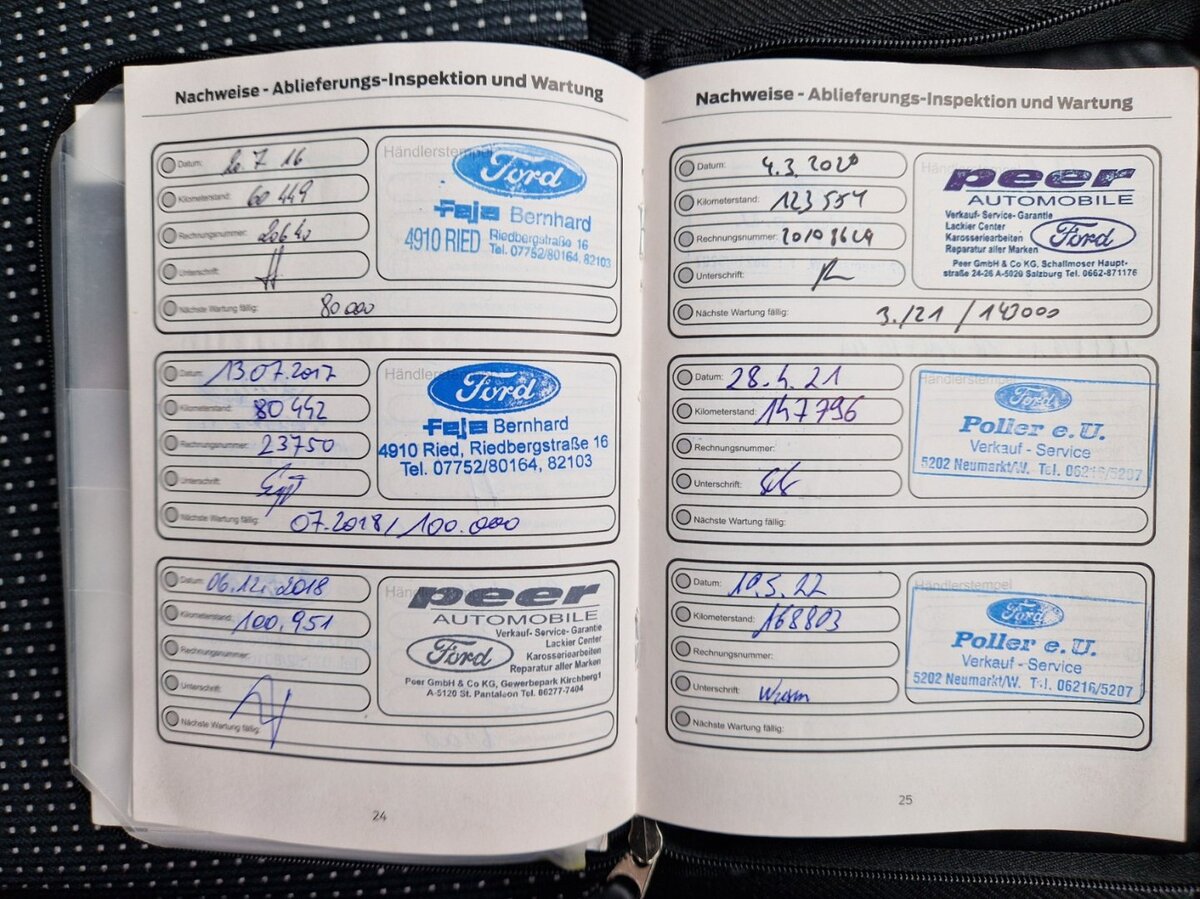 Nachweise - Ablieferungs-Inspektion und Wartung
Datum: 7 16
Kilometerstand: 60 449
Rechnungsnummer: 20640
Unterschrift:
Nächste Wartung fällig: 80 000
Händlerstempel
Ford
Feja Bernhard
4910 RIED Riedbergstraße 16
Tel. 07752/80164, 82103
Datum: 13.07.2017
Kilometerstand: 80 442
Rechnungsnummer: 23750
Unterschrift:
Nächste Wartung fällig: 07.2018/ 100.000
Händlerstempel
Ford
Feja Bernhard
4910 Ried, Riedbergstraße 16
Tel. 07752/80164, 82103
Datum: 06.12.2018
Kilometerstand: 100.951
Rechnungsnummer:
Unterschrift:
Nächste Wartung fällig:
peer
AUTOMOBILE
Verkauf- Service- Garantie
Lackier Center
Karosseriearbeiten
Reparatur aller Marken
Ford
Peer GmbH & Co KG, Gewerbepark Kirchberg1
A-5120 St. Pantaleon Tel. 06277-7404
24
Nachweise - Ablieferungs-Inspektion und Wartung
Datum: 4.3.2020
Kilometerstand: 123 554
Rechnungsnummer:
Unterschrift:
Nächste Wartung fällig: 3./21 / 143000
Händlerstempel
peer
AUTOMOBILE
Verkauf- Service- Garantie
Lackier Center
Karosseriearbeiten
Reparatur aller Marken
Ford
Peer GmbH & Co KG, Schallmoser Haupt-
straße 24-26 A-5020 Salzburg Tel. 0662-871176
Datum: 28.4.21
Kilometerstand: 147796
Rechnungsnummer:
Unterschrift:
Nächste Wartung fällig:
Händlerstempel
Ford
Poller e.U.
Verkauf - Service
5202 Neumarkt/W. Tel. 06216/5207
Datum: 19.5.22
Kilometerstand: 168803
Rechnungsnummer:
Unterschrift:
Nächste Wartung fällig:
Händlerstempel
Ford
Poller e.U.
Verkauf - Service
5202 Neumarkt/W. Tel. 06216/5207
25